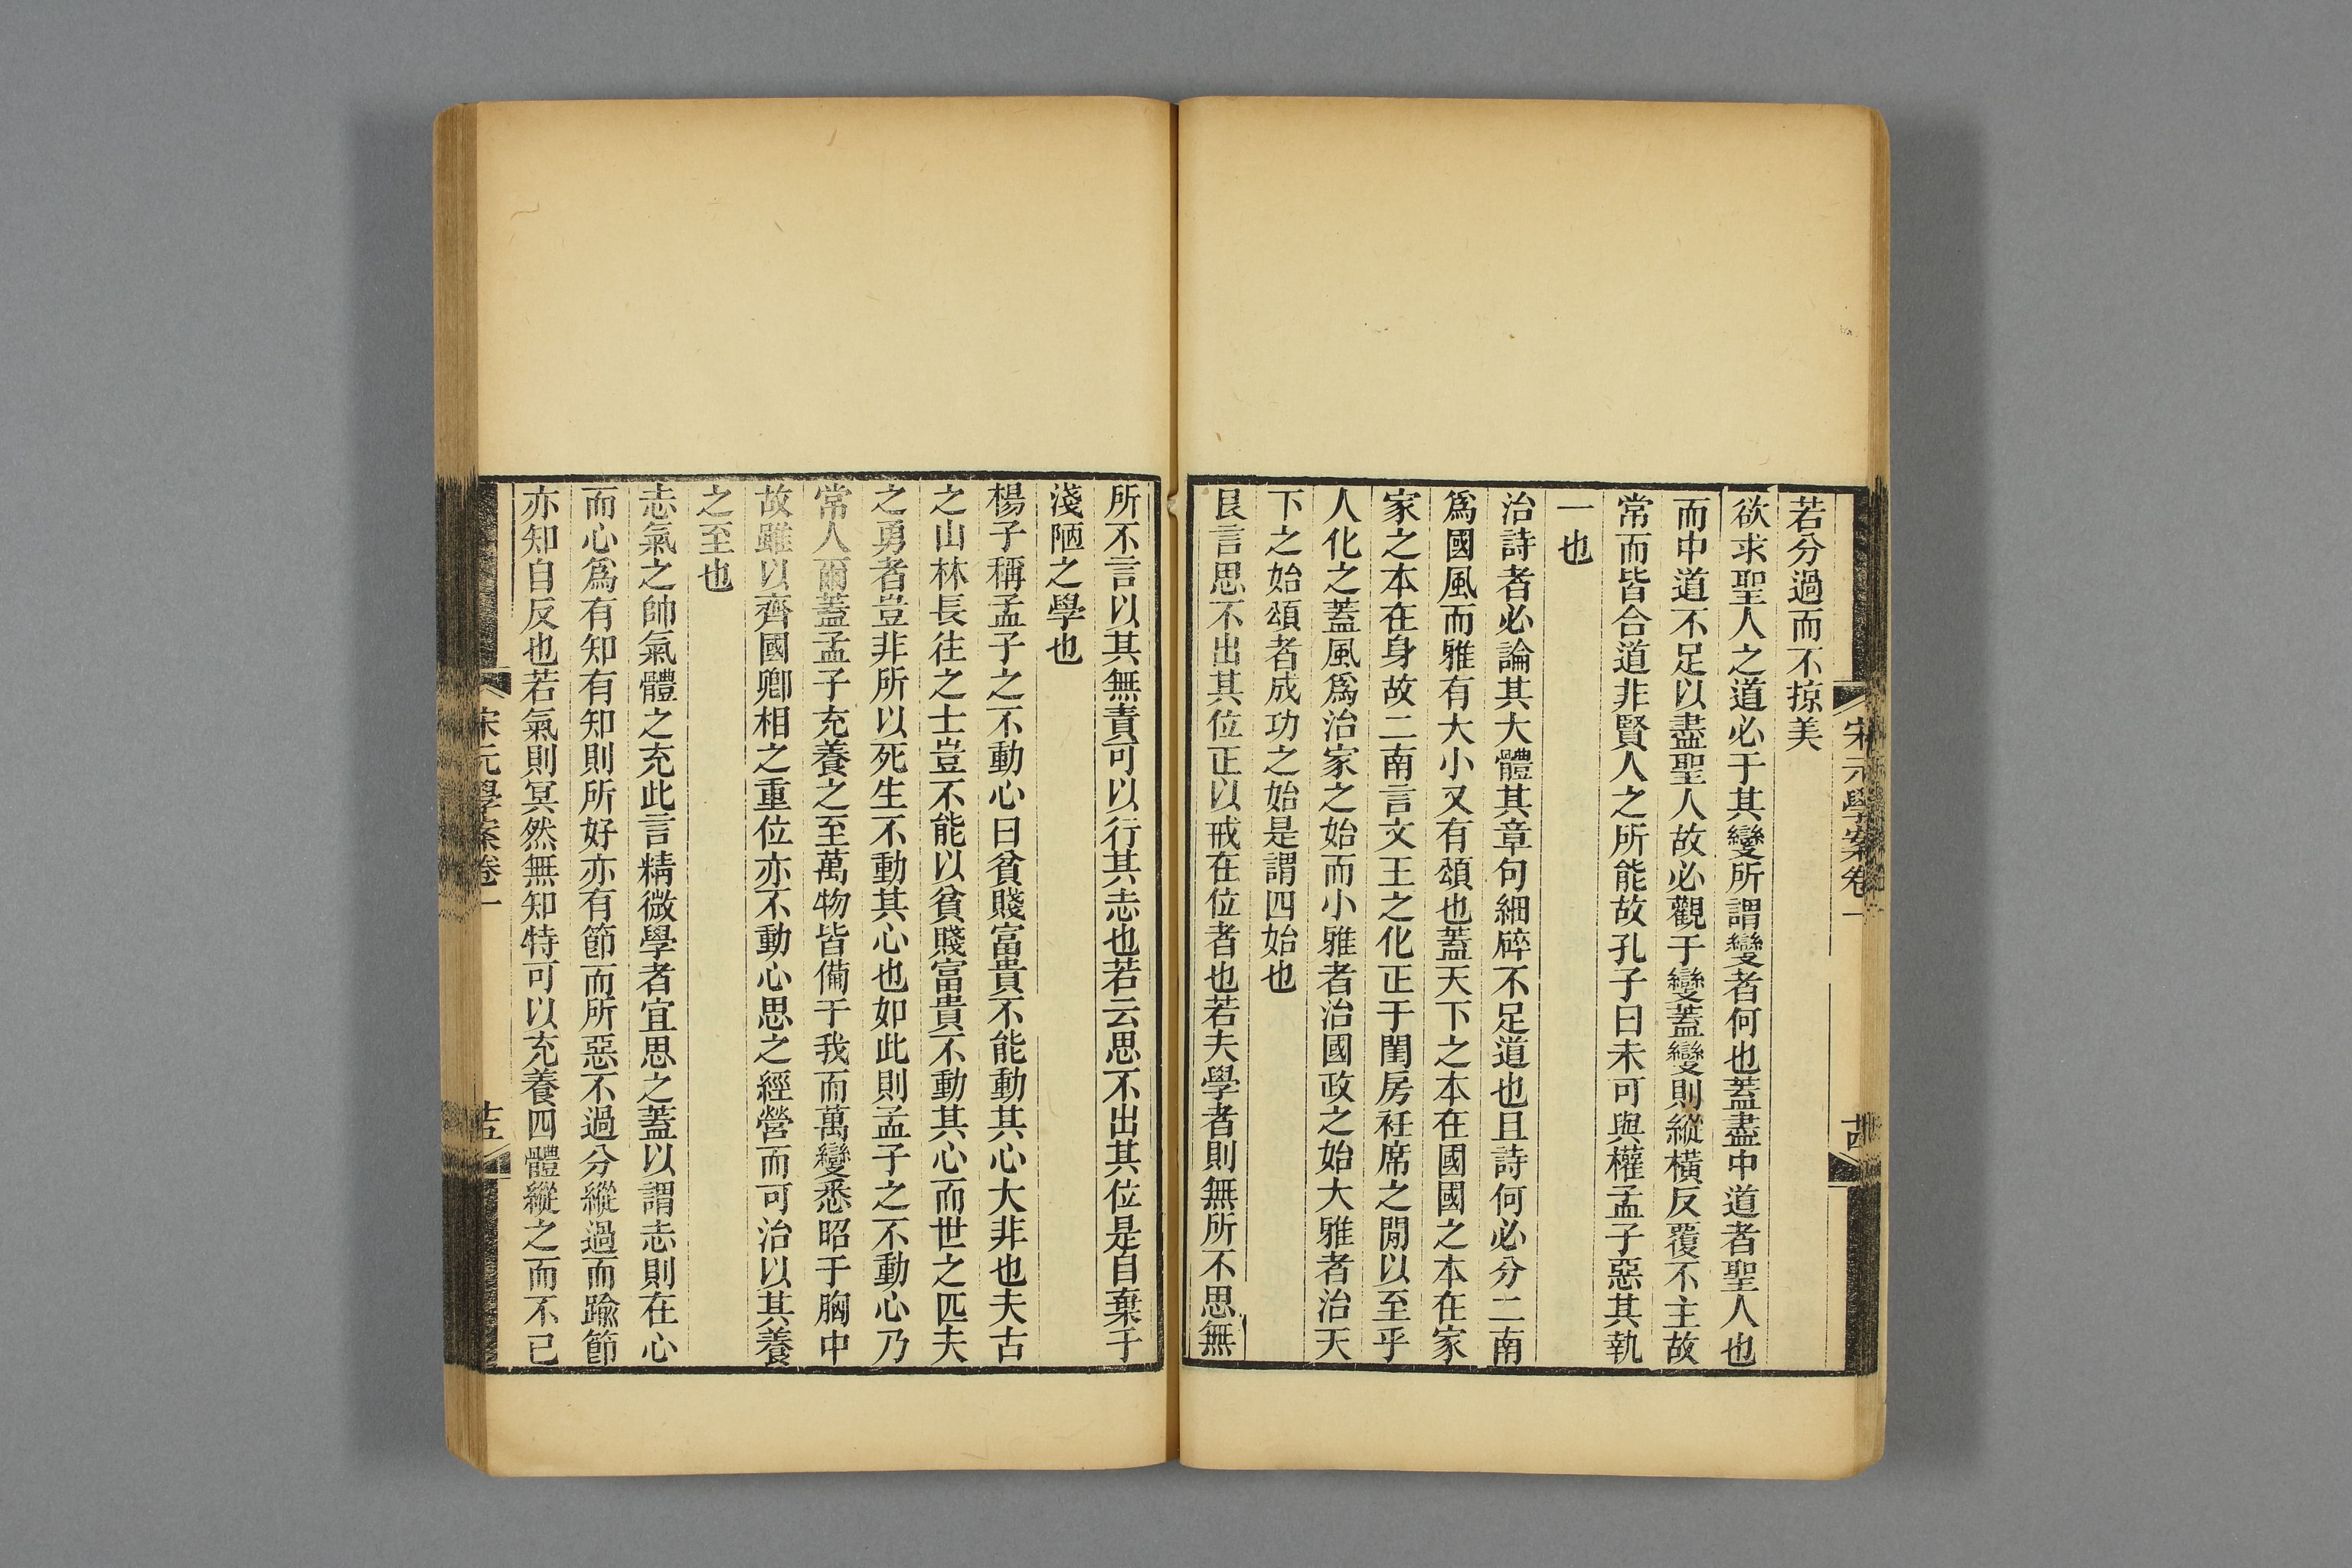 宋元學案卷一
若分過而不掠美
欲求聖人之道必于其變所謂變者何也蓋盡中道者聖人也
而中道不足以盡聖人故必觀于變蓋變則縱橫反覆不主故
常而皆合道非賢人之所能故孔子曰未可與權孟子惡其執
一也
治詩者必論其大體其章句細碎不足道也且詩何必分二南
爲國風而雅有大小又有頌也蓋天下之本在國國之本在家
家之本在身故二南言文王之化正于閨房衽席之閒以至乎
人化之蓋風爲治家之始而小雅者治國政之始大雅者治天
下之始頌者成功之始是謂四始也
艮言思不出其位正以戒在位者也若夫學者則無所不思無
所不言以其無責可以行其志也若云思不出其位是自棄于
淺陋之學也
楊子稱孟子之不動心曰貧賤富貴不能動其心大非也夫古
之山林長往之士豈不能以貧賤富貴不動其心而世之匹夫
之勇者豈非所以死生不動其心也如此則孟子之不動心乃
常人爾蓋孟子充養之至萬物皆備于我而萬變悉昭于胸中
故雖以齊國卿相之重位亦不動心思之經營而可治以其養
之至也
志氣之帥氣體之充此言精微學者宜思之蓋以謂志則在心
而心爲有知有知則所好亦有節而所惡不過分縱過而踰節
亦知自反也若氣則冥然無知特可以充養四體縱之而不已
宋元學案卷一